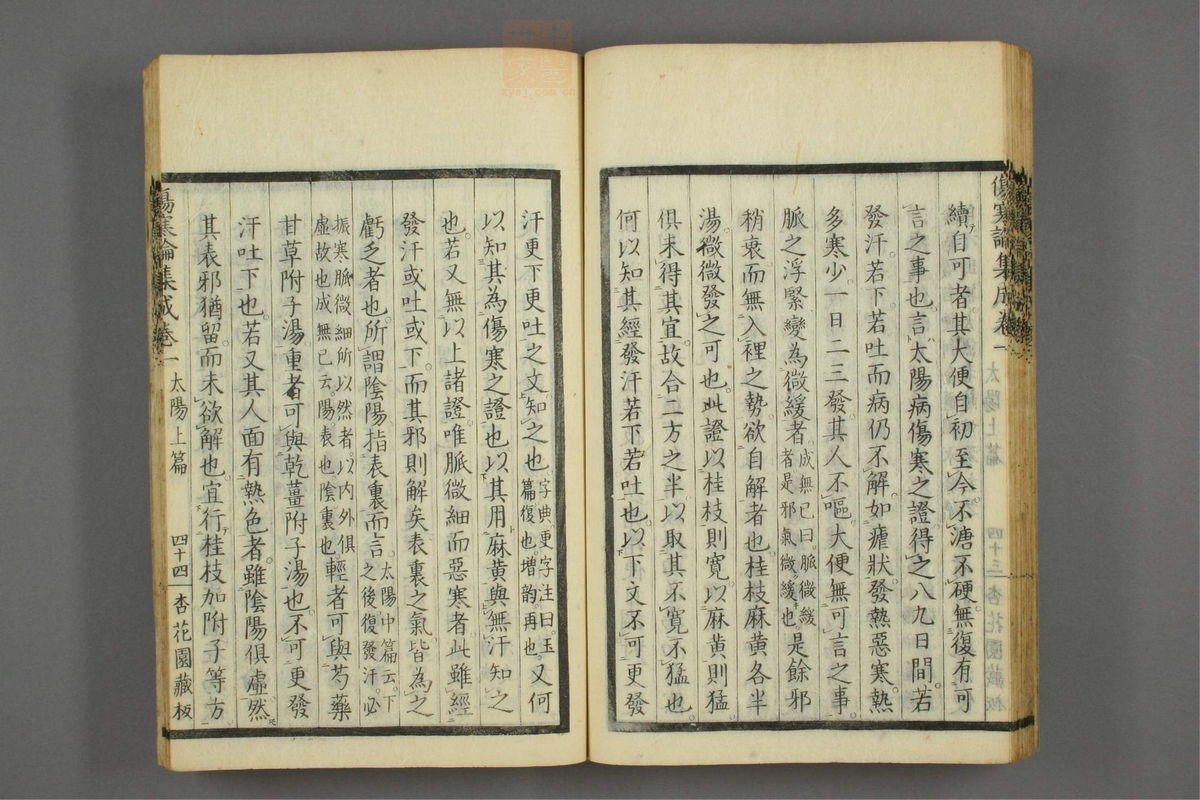 續自可者其大便自初至今不溏不硬無復有可
言之事也言太陽病傷寒之證得之八九日間若
發汗若下若吐而病仍不解如瘧狀發熱惡寒熱
多寒少一日二三發其人不嘔大便無可言之事
脈之浮緊變為微緩者成無已曰脈微緩者是邪氣微緩也是餘邪
稍衰而無入裡之勢欲自解者也桂枝麻黃各半
湯微微發之可也此證以桂枝則寬以麻黃則猛
俱未得其宜故合二方之半以取其不寬不猛也
何以知其經發汗若下若吐也以下文不可更發
傷寒論集成卷一 太陽上篇 四十三 杏花園藏板
汗更下更吐之文知之也字典更字注曰玉篇復也增韵再也又何
以知其為傷寒之證也以其用麻黃與無汗知之
也若又無以上諸證唯脈微細而惡寒者此雖經
發汗或吐或下而其邪則解矣表裏之氣皆為之
虧乏者也所謂陰陽指表裏而言太陽中篇云下之後復發汗必
振寒脈微細所以然者以內外俱虛故也成無已云陽表也陰裏也輕者可與芍藥
甘草附子湯重者可與乾薑附子湯也不可更發
汗吐下也若又其人面有熱色者雖陰陽俱虛然
其表邪猶留而未欲解也宜行桂枝加附子等方
傷寒論集成卷一 太陽上篇 四十四 杏花園藏板